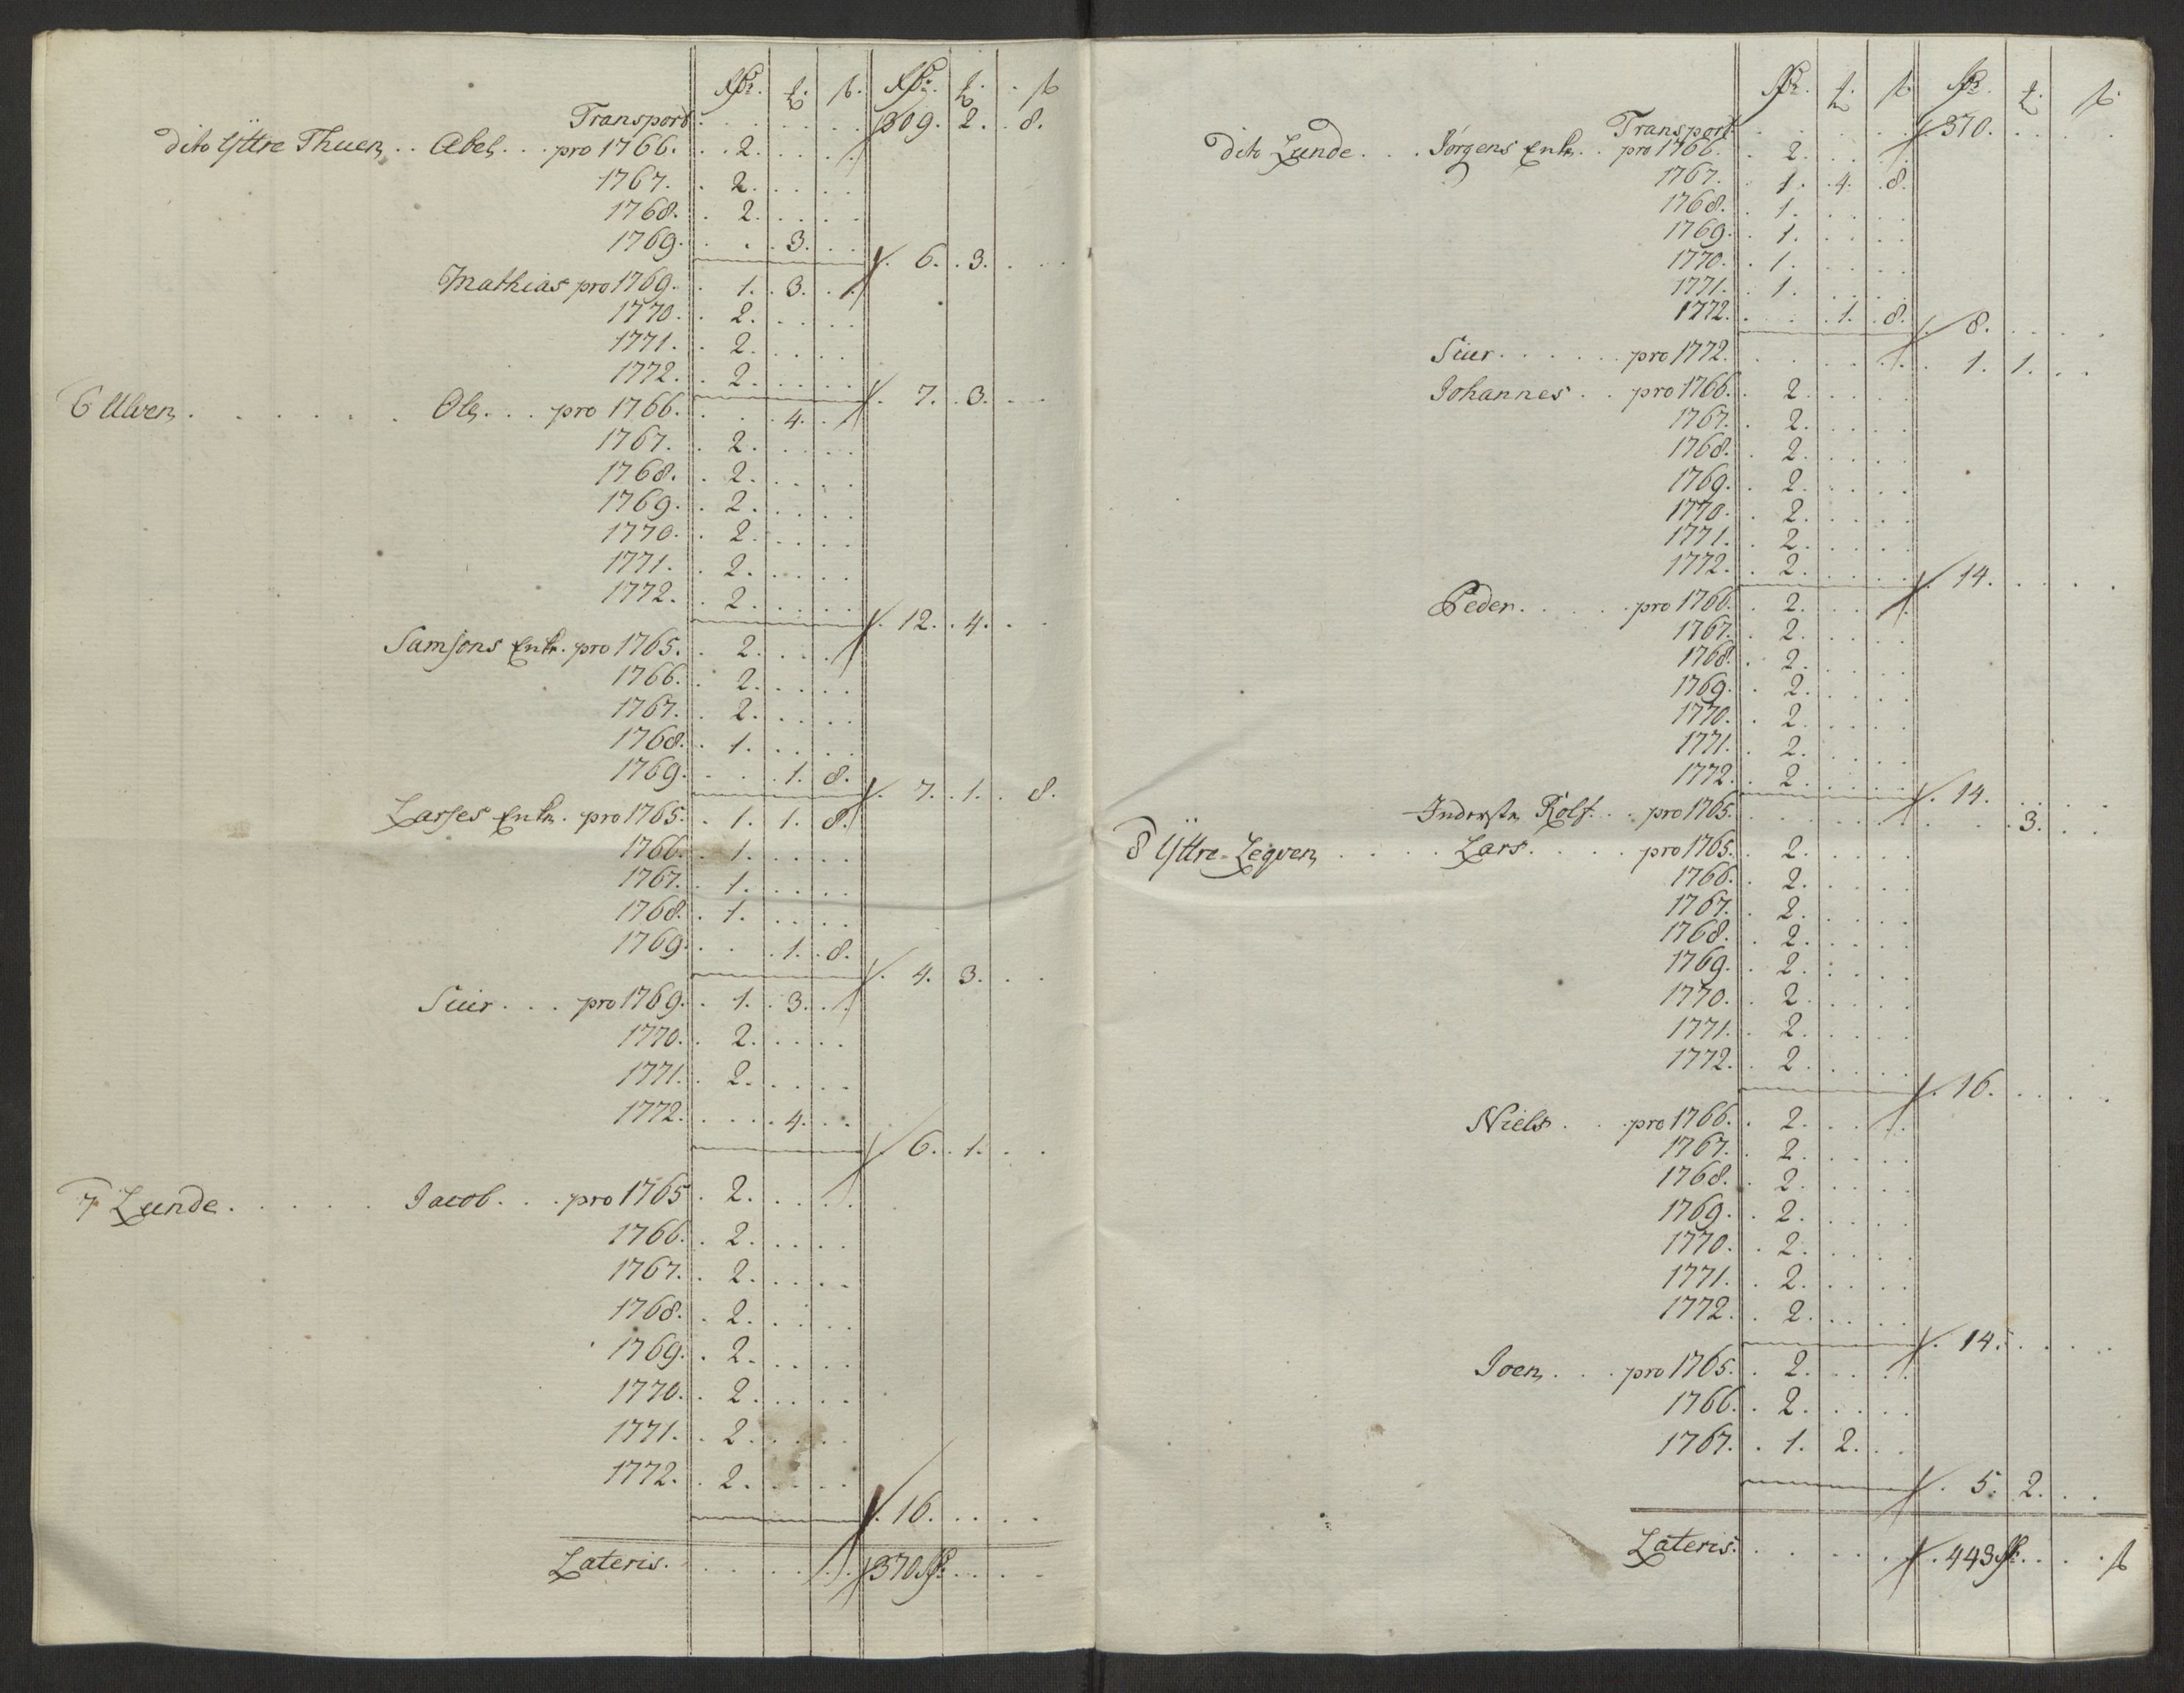 Rdr. ₰. ß. Rdr. ₰. ß
Transport . . . . 309. 2. 8.
dito Yttre Thuen .. Abel . . . pro 1766. . 2. . . .
1767. . 2. . . .
1768. . 2. . . .
1769. . . 3. . . 6. 3. . .
Mathias pro 1769. . 1. 3. . .
1770. . 2. . . .
1771. . 2. . . .
1772. . 2. . . . 7. 3. . .
6 Ulven . . . . . . Ole . . . pro 1766. . . 4. . .
1767. . 2. . . .
1768. . 2. . . .
1769. . 2. . . .
1770. . 2. . . .
1771. . 2. . . .
1772. . 2. . . . 12. 4. . .
Samsons Enke. pro 1765. . 2. . . .
1766. . 2. . . .
1767. . 2. . . .
1768. . 1. . . .
1769. . . 1. 8. 7. 1. 8.
Larses Enke. pro 1765. . 1. 1. 8.
1766. . 1. . . .
1767. . 1. . . .
1768. . 1. . . .
1769. . . 1. 8. 4. 3. . .
Siur . . . pro 1769. . 1. 3. . .
1770. . 2. . . .
1771. . 2. . . .
1772. . . 4. . . 6. 1. . .
7 Lunde . . . . . Jacob . . . pro 1765 . 2. . . .
1766. . 2. . . .
1767. . 2. . . .
1768. . 2. . . .
1769. . 2. . . .
1770. . 2. . . .
1771. . 2. . . .
1772. . 2. . . . 16. . . .
Lateris. . . . . 370 Rdr. . . .
Rdr. ₰. ß Rdr. ₰. ß.
Transport . . . . 370. . . .
dito Lunde . . . Jørgens Enke . . pro 1766. . 2. . . .
1767. . 1. 4. 8.
1768. . 1. . . .
1769. . 1. . . .
1770. . 1. . . .
1771. . 1. . . .
1772. . . 1. 8. 8. . . .
Siur . . . . . . pro 1772. . . . . 1. 1. . .
Johannes . . pro 1766. . 2. . . .
1767. . 2. . . .
1768. . 2. . . .
1769. . 2. . . .
1770. . 2. . . .
1771. . 2. . . .
1772. . 2. . . . 14. . . .
Peder . . . . . pro 1766. . 2. . . .
1767. . 2. . . .
1768. . 2. . . .
1769. . 2. . . .
1770. . 2. . . .
1771. . 2. . . .
1772. . 2. . . . 14. . . .
Inderste Rolf . . . pro 1765. . . . . . 3. . .
8 Yttre-Leqven . . . . Lars . . . . pro 1765. . 2. . . .
1766. . 2. . . .
1767. . 2. . . .
1768. . 2. . . .
1769. . 2. . . .
1770. . 2. . . .
1771. . 2. . . .
1772. . 2. . . . 16. . . .
Niels . . . pro 1766. . 2. . . .
1767. . 2. . . .
1768. . 2. . . .
1769. . 2. . . .
1770. . 2. . . .
1771. . 2. . . .
1772. . 2. . . . 14. . . .
Joen . . . pro 1765. . 2. . . .
1766. . 2. . . .
1767. . 1. 2. . . 5. 2. . .
Lateris. . . . . 443 Rdr. . . . ß